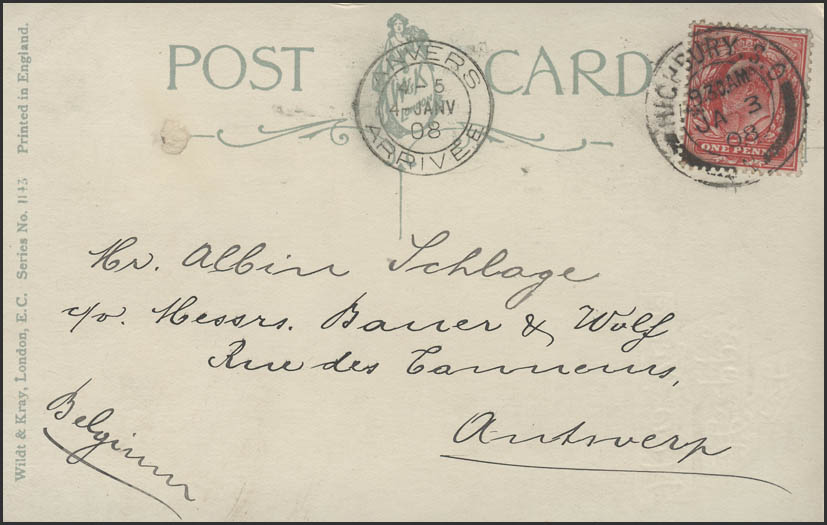 POST CARD
ANVERS
4-5
4 JANV
08
ARRIVÉE
HIGHBURY
9 30AM
JA 3
08
ONE PENNY
Mr. Albin Schlage
c/o. Messrs. Bauer & Wolf
Rue des Tanneurs,
Antwerp
Belgium
Wildt & Kray, London, E.C. Series No. 1143 Printed in England.